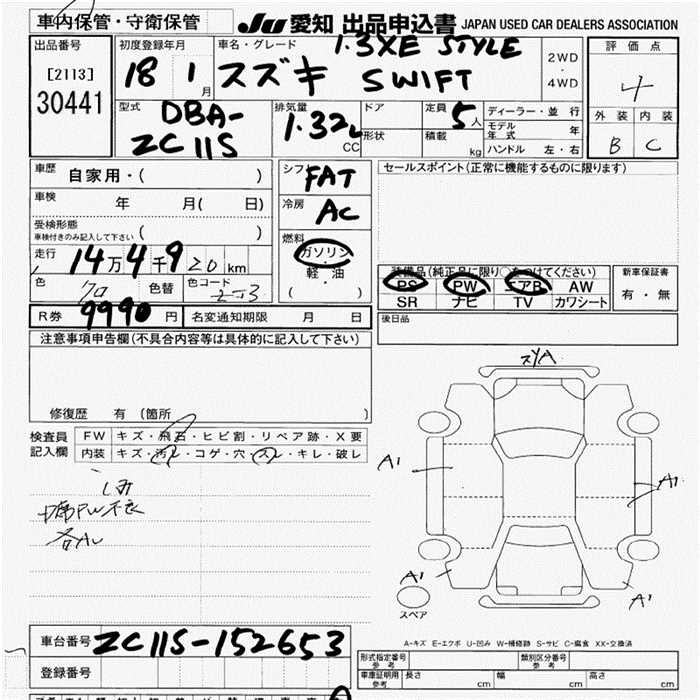 車内保管・守衛保管
JU 愛知 出品申込書 JAPAN USED CAR DEALERS ASSOCIATION
出品番号
[2113]
30441
初度登録年月
18 1 月
車名・グレード
1.3XE STYLE
スズキ SWIFT
2WD
・
4WD
評価点
4
外装 内装
B C
型式
DBA-
ZC11S
排気量
1.32L
CC
ドア
形状
定員
5 人
積載
kg
ディーラー・並行
モデル年式 年
ハンドル 左・右
車歴
自家用・( )
車検
年 月( 日)
受検形態
車検付きのみ記入して下さい ( )
走行
14万4千920km
色
クロ
色替
色コード
ZJ3
R券 9990 円
名変通知期限 月 日
シフト
FAT
冷房
AC
燃料
ガソリン
・
軽油
( )
セールスポイント(正常に機能するものに限ります)
装備品(純正品に限り○をつけてください)
PS PW エアB AW
SR ナビ TV カワシート
新車保証書
有・無
後日品
注意事項申告欄(不具合内容等は具体的に記入して下さい)
修復歴 有 (箇所 )
検査員
記入欄
FW キズ・飛石・ヒビ割・リペア跡・X要
内装 キズ・汚レ・コゲ・穴・スレ・キレ・破レ
各AL
A1
A1
A1
A1
スペア
A-キズ E-エクボ U-凹み W-補修跡 S-サビ C-腐食 XX-交換済
車台番号 ZC11S-152653
登録番号
形式指定番号
参考
類別区分番号
参考
車庫証明用
参考
長さ cm
幅 cm
高さ cm